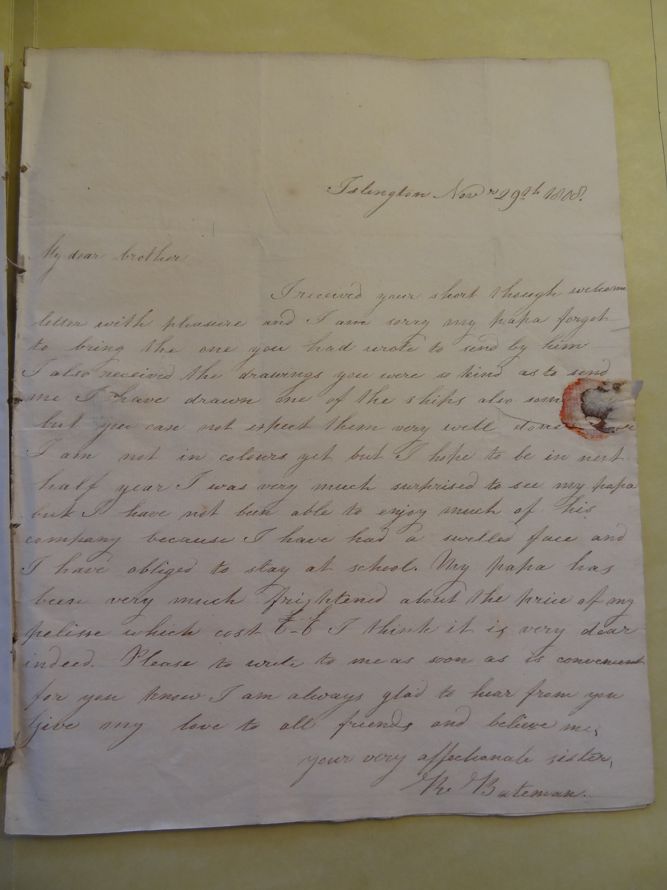 Islington Novr 29th 1808.
My dear brother
I received your short though welcome
letter with pleasure and I am sorry my papa forgot
to bring the one you had wrote to send by him
I also received the drawings you were so kind as to send
me I have drawn one of the ships also som
but you can not expect them very well done
I am not in colours yet but I hope to be in next
half year I was very much surprised to see my papa
but I have not been able to enjoy much of his
company because I have had a swelled face and
I have obliged to stay at school. My papa has
been very much frightened about the price of my
pelisse which cost I think it is very dear
indeed. Please to write to me as soon as is convenient
for you know I am always glad to hear from you
Give my love to all friends and believe me,
your very affectionate sister,
Bateman.